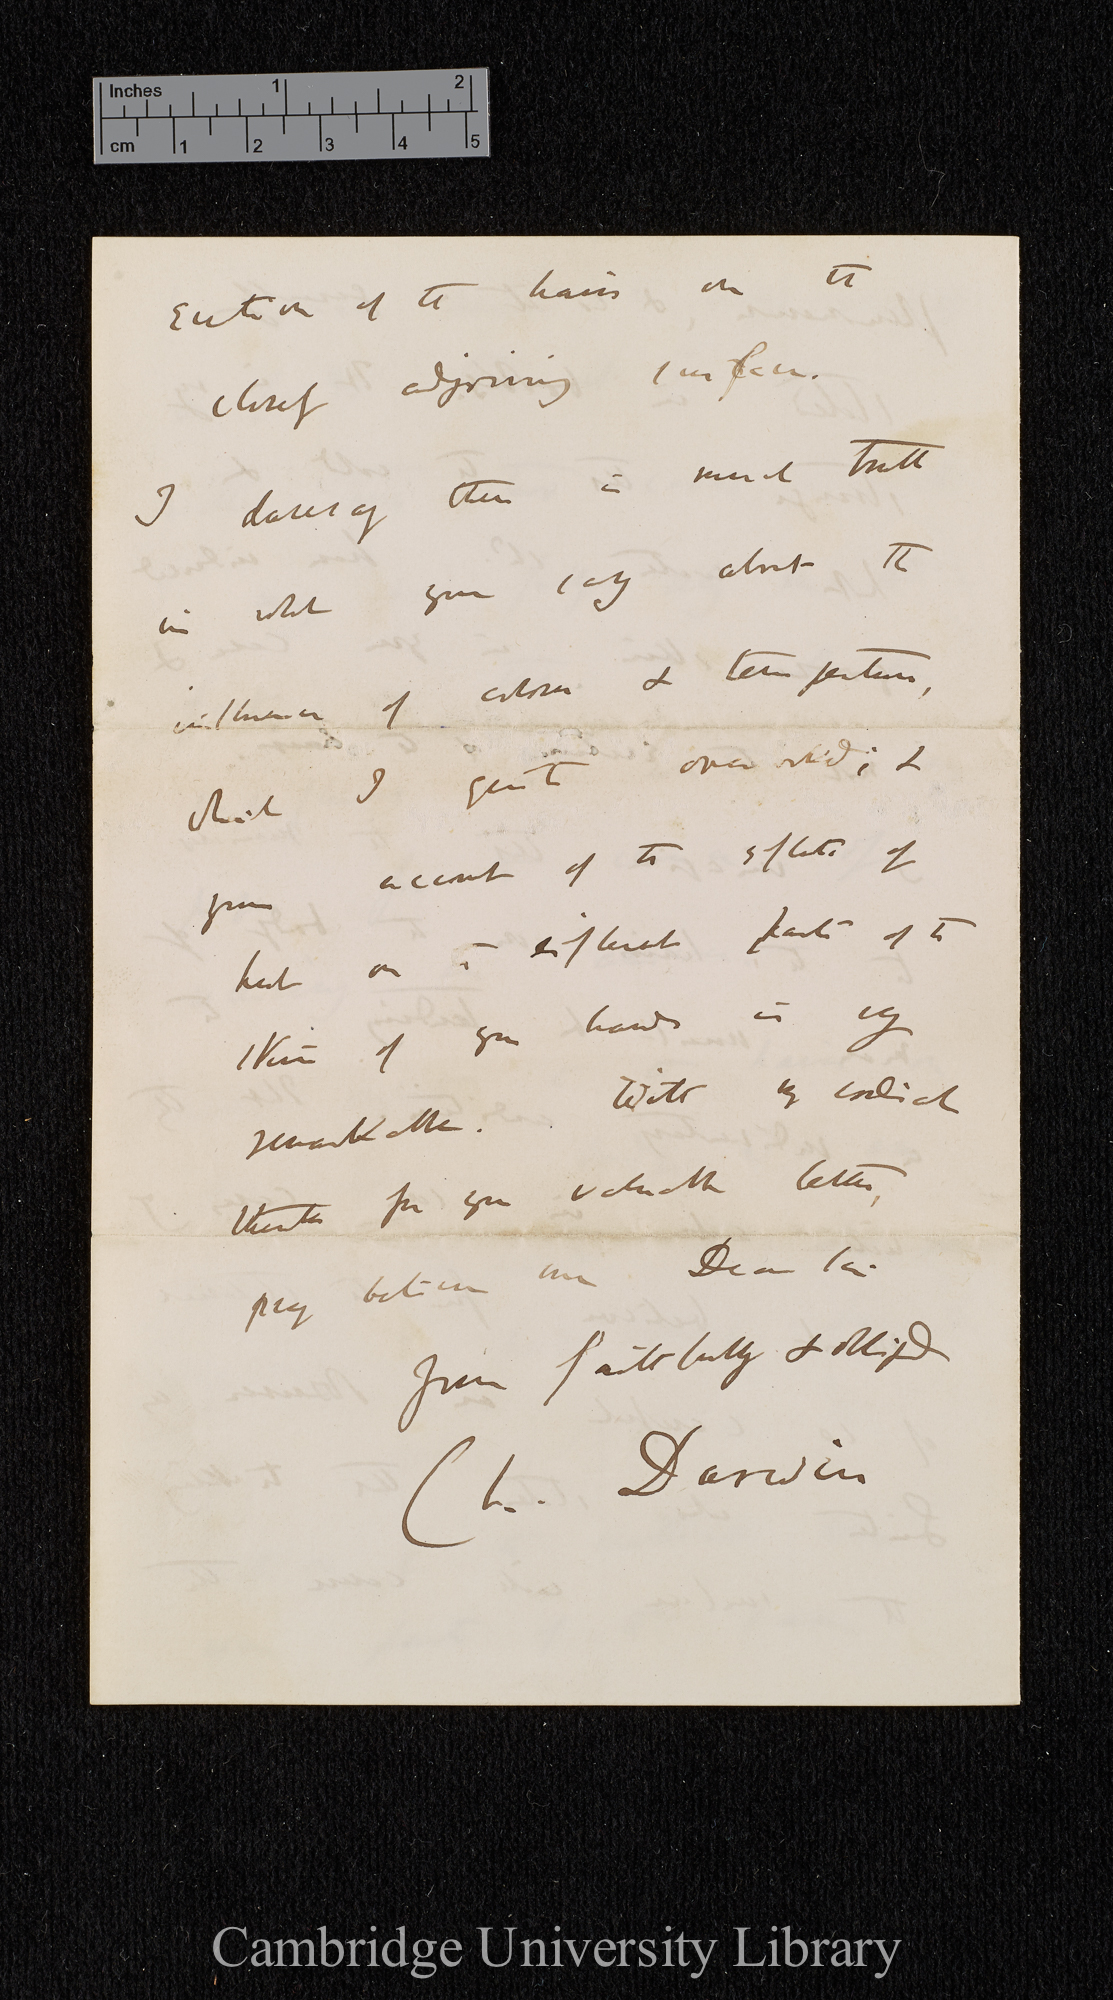 Inches 1 2
cm 1 2 3 4 5
erection of the hairs on the
closely adjoining surface.
I daresay there is much truth
in what you say about the
influence of colour & temperature,
which I quite overlooked; &
your account of the effects of
heat on different parts of the
skin of your hands is very
remarkable. With my cordial
thanks for your valuable letter,
pray believe me Dear Sir
Yours faithfully & obliged
Ch. Darwin
Cambridge University Library